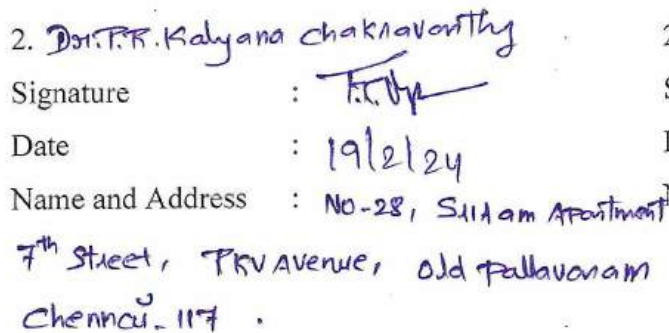 2. Dr. P.R. Kalyana chakravarthy
Signature :
Date : 19/2/24
Name and Address : NO-28, Apartment
7th Street, PKV Avenue, Old Pallavaram
Chennai-117.